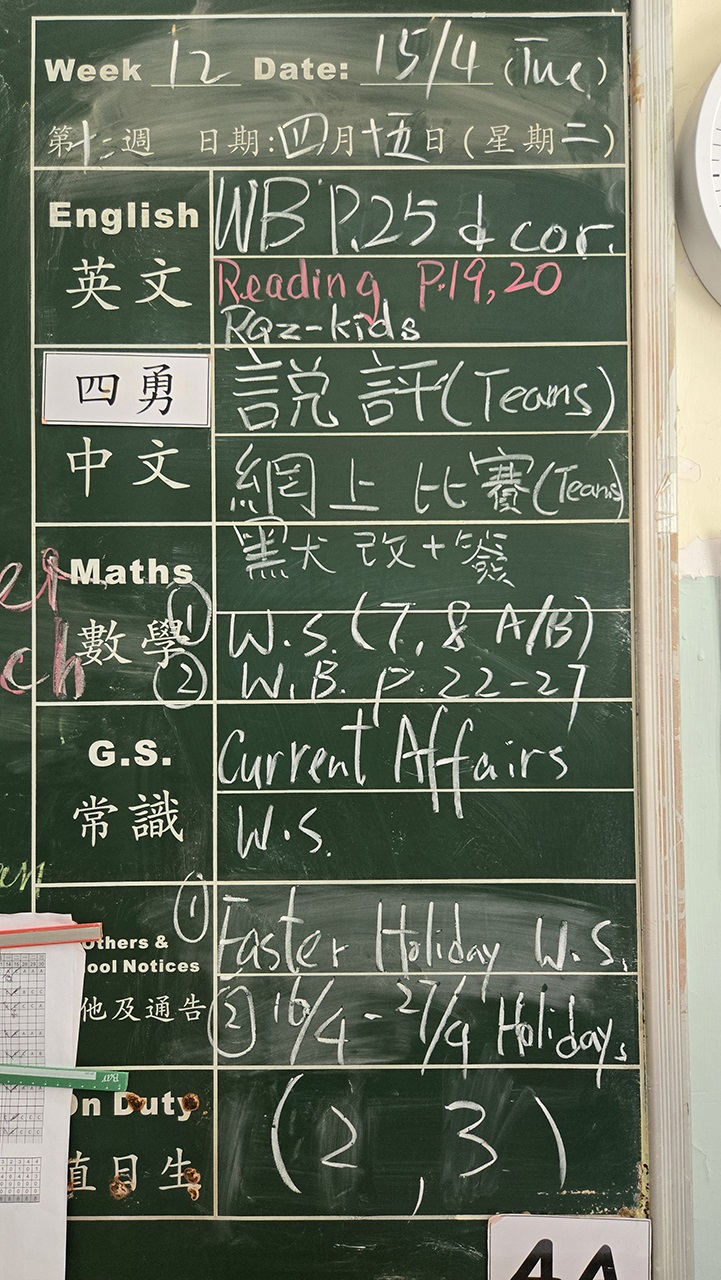 Week 12 Date: 15/4 (Tue)
第十二週 日期:四月十五日(星期二)
English WB P.25 & cor.
英文 Reading P.19,20
Raz-kids
四勇 說評(Teams)
中文 網上比賽(Teams)
Maths 黑犬改+簽
數學 ① W.S. (7, 8 A/B)
② W.B. P. 22-27
G.S. Current Affairs
常識 W.S.
Others &
ool Notices ① Easter Holiday W.S.
他及通告 ② 16/4 - 27/4 Holidays
On Duty (2, 3)
值日生
4A